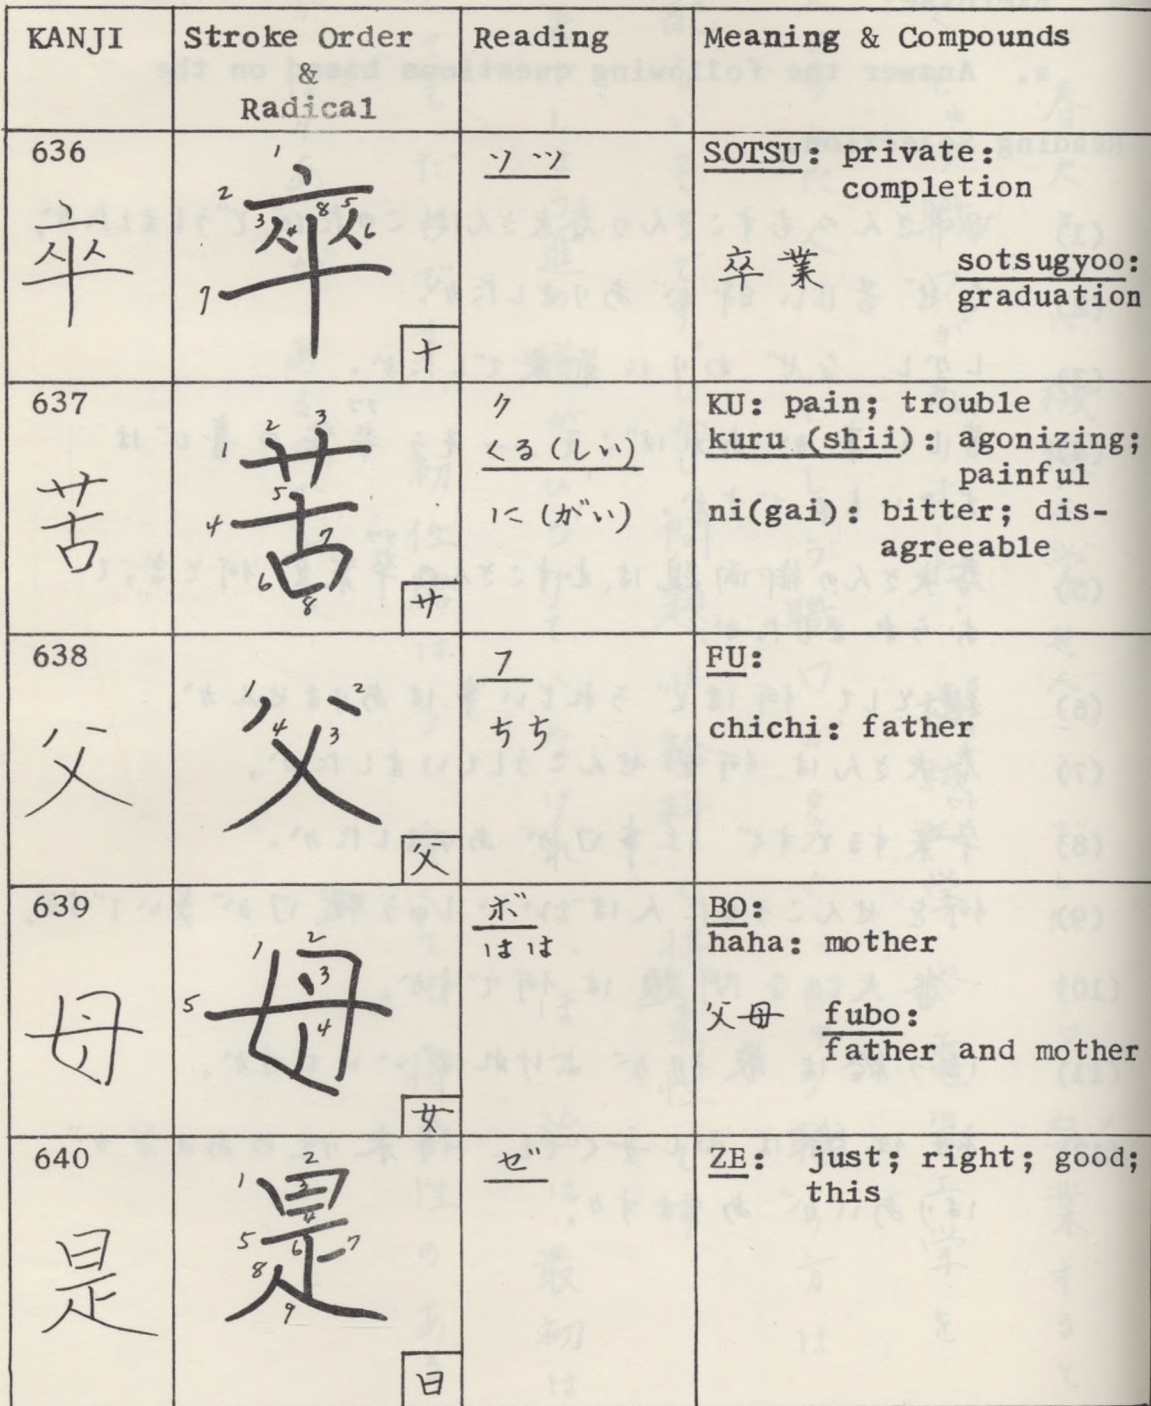 KANJI
Stroke Order
&
Radical
Reading
Meaning & Compounds
636
卒
1 2 3 4 5 6 7 8
卒
十
ソツ
SOTSU: private:
completion
卒業 sotsugyoo:
graduation
637
苦
1 2 3 4 5 6 7 8
苦
サ
ク
くる(しい)
に(がい)
KU: pain; trouble
kuru (shii): agonizing;
painful
ni(gai): bitter; dis-
agreeable
638
父
1 2 3 4
父
父
フ
ちち
FU:
chichi: father
639
母
1 2 3 4 5
母
女
ボ
はは
BO:
haha: mother
父母 fubo:
father and mother
640
是
1 2 3 4 5 6 7 8 9
是
日
ゼ
ZE: just; right; good;
this